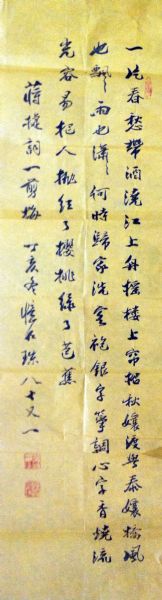 一片春愁帶酒澆江上舟搖樓上帘招秋孃渡與泰孃橋風
也飄〃雨也瀟〃何時歸家洗客袍銀字箏調心字香燒流
光容易把人拋紅了櫻桃綠了芭蕉
蔣捷詞一剪梅 丁亥冬 石珠八十又一